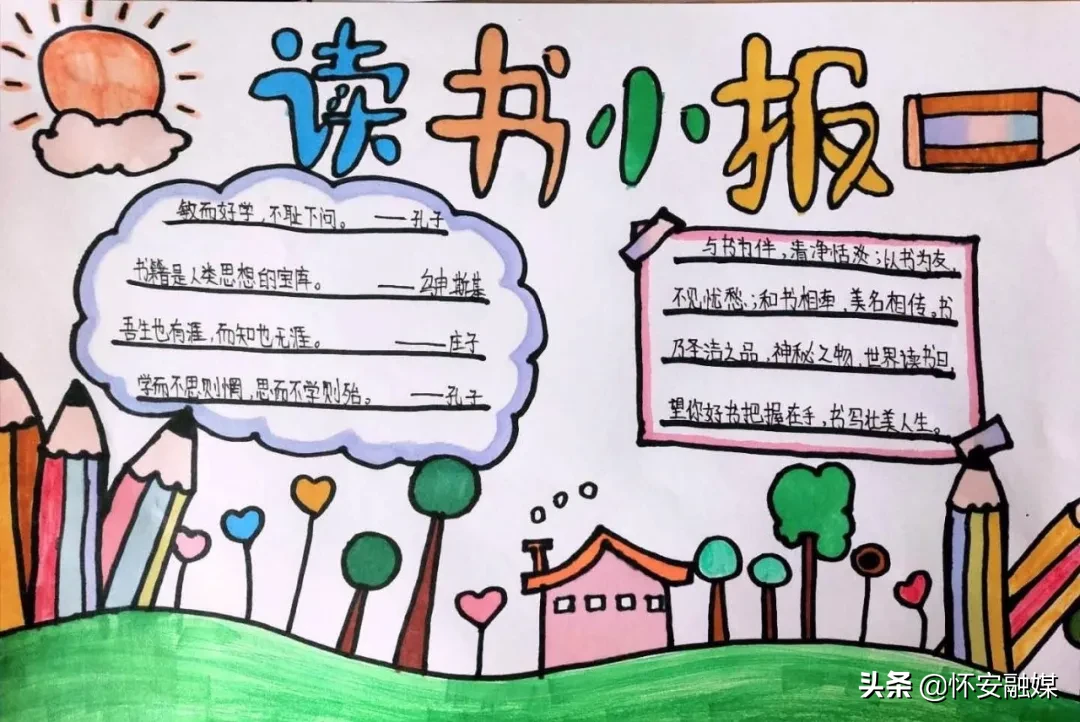 读书小报
敏而好学,不耻下问。 ——孔子
书籍是人类思想的宝库。 ——乌申斯基
吾生也有涯,而知也无涯。 ——庄子
学而不思则惘,思而不学则殆。 ——孔子
与书为伴,清净恬淡;以书为友,
不见忧愁;和书相牵,美名相传。书
乃圣洁之品,神秘之物,世界读书日,
望你好书把握在手,书写壮美人生。
头条 @怀安融媒